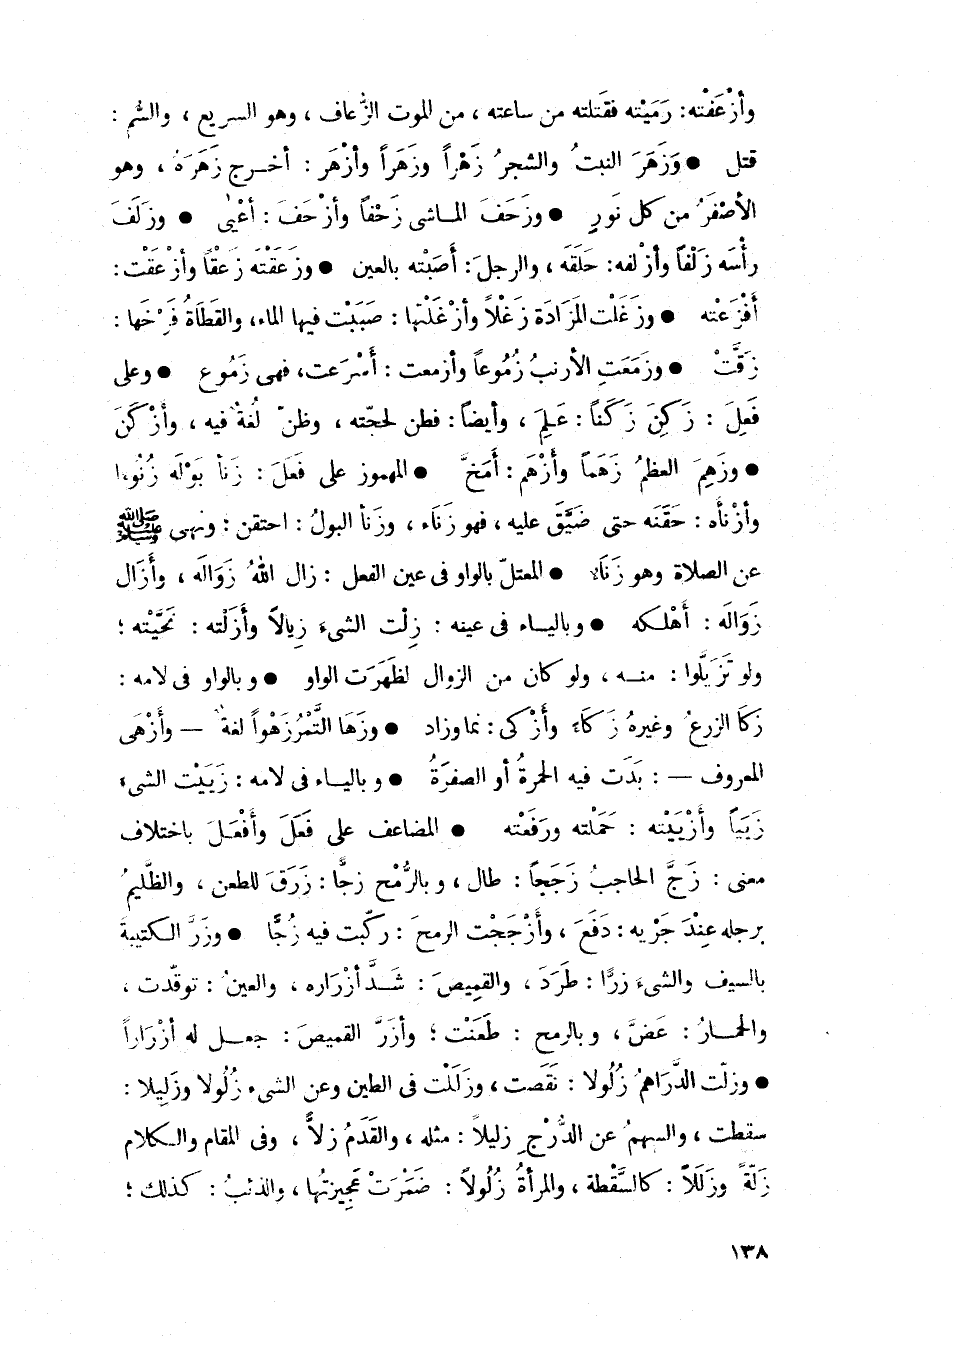 وأزْعَفْته: رَمَيْته فقَتلته من ساعته ، من الموت الزُّعاف ، وهو السريع ، والسُّم :
قتل ● وَزَهَرَ النبتُ والشجرُ زَهْراً وزَهَراً وأزْهَر : أخرج زَهَرَهُ ، وهو
الأصْفَرُ من كل نَورٍ ● وزَحَفَ الماشى زَحْفاً وأزْحَفَ : أعْيَى ● وزلَفَ
رأْسَه زَلْفاً وأزْلفه: حلقَه ، والرجلَ: أصَبْته بالعين ● وزعَقْتَه زَعقاً وأزْعقْت :
أفْزَعْته ● وزَغَلْت المَزَادَة زغْلاً وأزْغَلْتها : صَبَبْت فيها الماء، والقَطَاةُ فَرْخَها :
زقَّتْ ● وزمَعَتِ الأرنبُ زُمُوعاً وأزمعت : أسْرَعت، فهى زَمُوع ● وعلى
فَعِلَ : زَكِنَ زَكَناً : عَلِمَ ، وأيضاً : فطن لحجّته ، وظنّ لُغةٌ فيه ، وأزْكَنَ
● وزَهِمَ العظمُ زَهَماً وأزْهَم : أمَخَّ ● المهموز على فَعَلَ : زَنأ بَوْلَه زُنُوءا
وأزْنأه : حَقَنَه حتى ضَيَّقَ عليه ، فهو زَنَاء ، وزَنأ البولُ : احتقن : ونهى ﷺ
عن الصلاة وهو زَنَاء ● المعتلّ بالواو فى عين الفعل : زال اللهُ زَوَالَه ، وأزَال
زَوَالَه : أهْلكه ● وبالياء فى عينه : زِلْت الشىءَ زِيالاً وأزَلْته : نَحَّيْته ؛
ولو تَزَيَّلُوا : منه ، ولو كان من الزوال لظهَرَت الواو ● وبالواو فى لامه :
زكَا الزرعُ وغيرهُ زَكَاءً وأزْكى : نما وزاد ● وزَهَا التَّمْرُ زَهْواً لغةٌ — وأزْهَى
المعروف — : بَدَت فيه الحمرةُ أو الصفرَةُ ● وبالياء فى لامه : زَبَيْت الشىء
زَبَياً وأزْبَيْته : حَمَلْته ورَفَعْته ● المضاعف على فَعَلَ وأفْعَلَ باختلاف
معنى : زَجَّ الحاجبُ زَجَجاً : طال ، وبالرُّمْح زجًّا : زَرَقَ للطعن ، والظَّليمُ
برجله عِنْدَ جَرْيه : دَفَعَ ، وأزْجَجْت الرمحَ : ركّبت فيه زُجًّا ● وزَرَّ الكتيبةَ
بالسيف والشىءَ زرًّا : طَرَدَ ، والقميصَ : شَدَّ أزْرَاره ، والعينُ : توقّدت ،
والحمارُ : عَضَّ ، وبالرمح : طَعَنْت ؛ وأزَرَّ القميصَ : جعل له أزْرَاراً
● وزلّت الدَّرَاهمُ زُلُولا : نَقَصت ، وزَلَلْت فى الطين وعن الشىء زُلُولا وزَلِيلا :
سقطت ، والسهمُ عن الدُّرْجِ زليلاً : مثله ، والقَدَمُ زلاًّ ، وفى المقام والكلام
زَلّةً وزَلَلاً : كالسَّقْطة ، والمرأةُ زُلُولاً : ضَمَرَتْ عَجِيزتُها ، والذئبُ : كذلك ؛
١٣٨